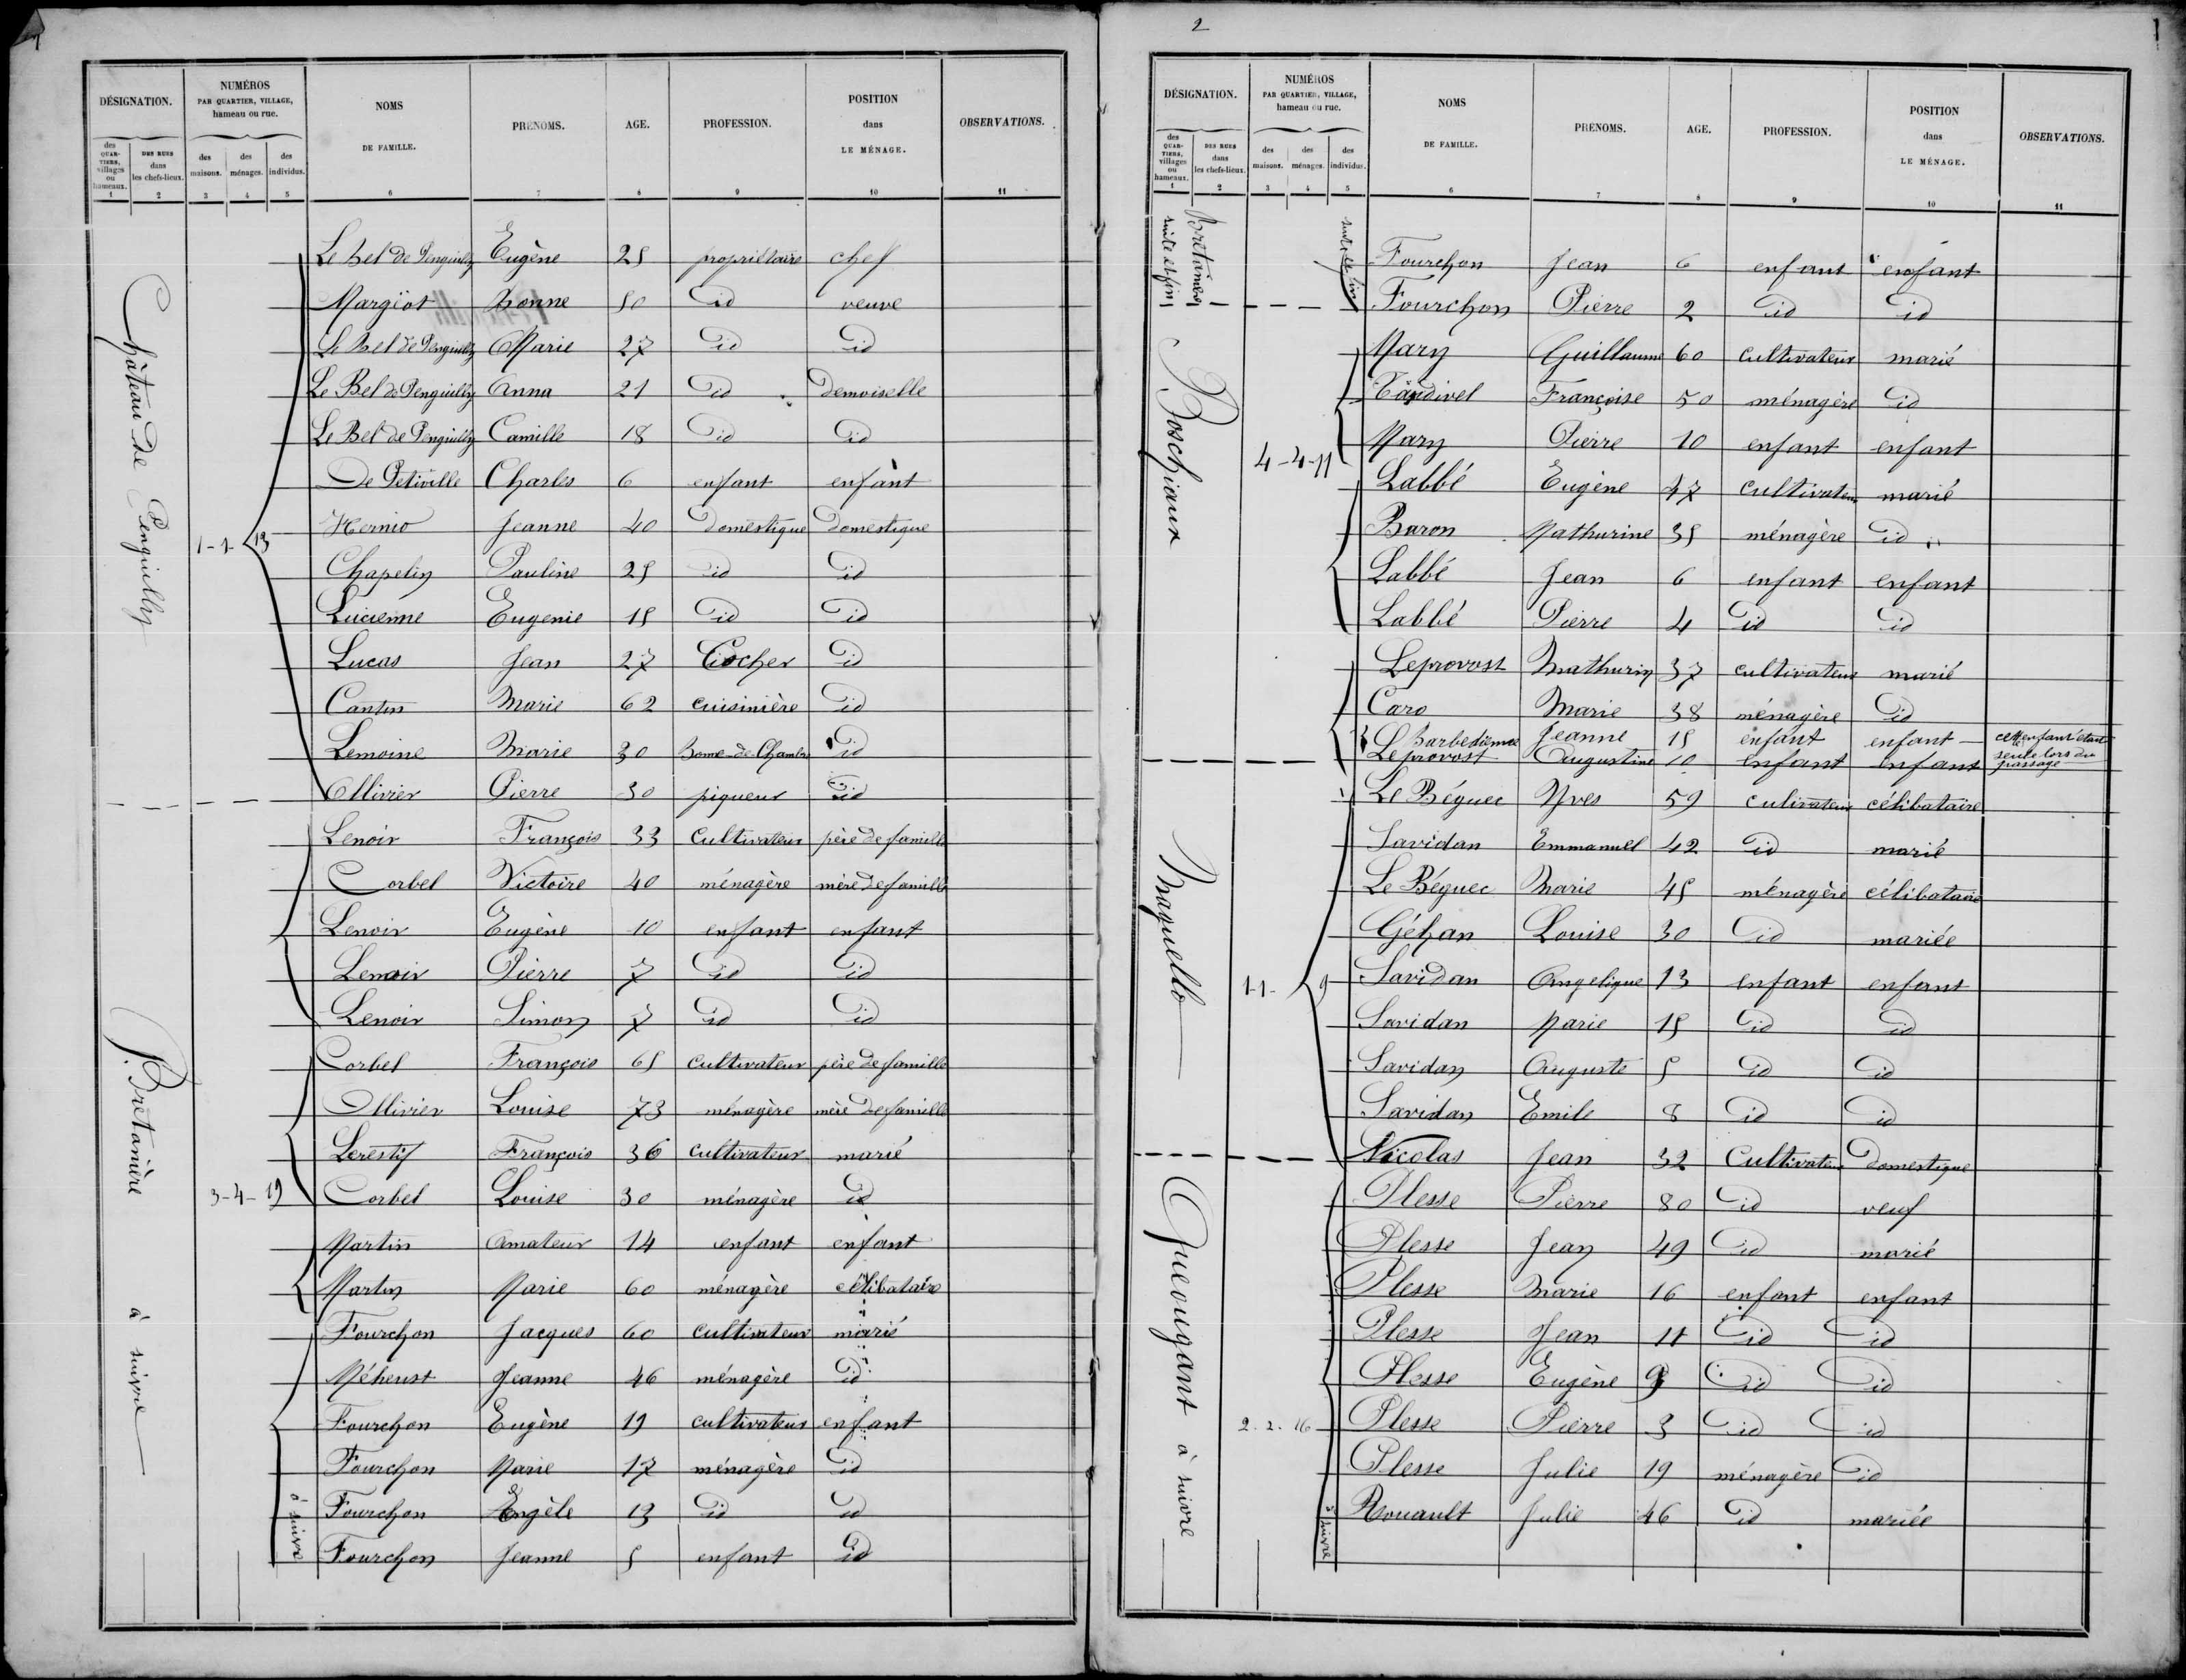 DÉSIGNATION.
NUMÉROS
PAR QUARTIER, VILLAGE,
hameau ou rue.
NOMS
DE FAMILLE.
PRÉNOMS.
AGE.
PROFESSION.
POSITION
dans
LE MÉNAGE.
OBSERVATIONS.
des QUAR-TIERS, villages ou hameaux.
DES RUES dans les chefs-lieux.
des maisons.
des ménages.
des individus.
1 2 3 4 5 6 7 8 9 10 11
Château de Penguilly
1-1-13
Le Bel de Penguilly Eugène 25 propriétaire chef
Margiot 50 id veuve
Le Bel de Penguilly Marie 27 id id
Le Bel de Penguilly Anna 21 id demoiselle
Le Bel de Penguilly Camille 18 id id
De Petiville Charles 6 enfant enfant
Hernio Jeanne 40 domestique domestique
Chapelin Pauline 25 id id
Lucienne Eugenie 15 id id
Lucas Jean 27 Cocher id
Cantin Marie 62 cuisinière id
Lemoine Marie 30 Bonne-de-Chambre id
Ollivier Pierre 30 piqueur id
P. Bretanière à suivre
3-4-19
Lenoir François 33 Cultivateur père de famille
Corbel Victoire 40 ménagère mère de famille
Lenoir Eugène 10 enfant enfant
Lenoir Pierre 7 id id
Lenoir Simon 7 id id
Corbel François 65 cultivateur père de famille
Ollivier Louise 73 ménagère mère de famille
Lerestif François 36 cultivateur marié
Corbel Louise 30 ménagère id
Martin Amateur 14 enfant enfant
Martin Marie 60 ménagère célibataire
Fourchon Jacques 60 cultivateur marié
Méheust Jeanne 46 ménagère id
Fourchon Eugène 19 cultivateur enfant
Fourchon Marie 17 ménagère id
Fourchon Angèle 13 id id
Fourchon Jeanne 5 enfant id
à suivre
2
DÉSIGNATION.
NUMÉROS
PAR QUARTIER, VILLAGE,
hameau ou rue.
NOMS
DE FAMILLE.
PRÉNOMS.
AGE.
PROFESSION.
POSITION
dans
LE MÉNAGE.
OBSERVATIONS.
des QUAR-TIERS, villages ou hameaux.
DES RUES dans les chefs-lieux.
des maisons.
des ménages.
des individus.
1 2 3 4 5 6 7 8 9 10 11
Bretanière
suite et fin
suite et fin
Fourchon Jean 6 enfant enfant
Fourchon Pierre 2 id id
Boschiaux
4-4-11
Mary Guillaume 60 cultivateur marié
Tardivel Françoise 50 ménagère id
Mary Pierre 10 enfant enfant
Labbé Eugène 47 cultivateur marié
Baron Mathurine 35 ménagère id
Labbé Jean 6 enfant enfant
Labbé Pierre 4 id id
Leprovost Mathurin 37 cultivateur marié
Caro Marie 38 ménagère id
Barbedienne Jeanne 15 enfant enfant cette enfant était
Leprovost Augustine 10 enfant enfant seule lors du passage
1-1-9
Le Béguec Yves 59 culivateur célibataire
Savidan Emmanuel 42 id marié
Le Béguec Marie 45 ménagère célibataire
Géhan Louise 30 id mariée
Savidan Angelique 13 enfant enfant
Savidan Marie 15 id id
Savidan Auguste 5 id id
Savidan Emile 8 id id
Nicolas Jean 32 Cultivateur domestique
Guevugant à suivre
2.2.16
Plesse Pierre 80 id veuf
Plesse Jean 49 id marié
Plesse Marie 16 enfant enfant
Plesse Jean 11 id id
Plesse Eugène 9 id id
Plesse Pierre 3 id id
Plesse Julie 19 ménagère id
Rouault Julie 46 id mariée
à suivre